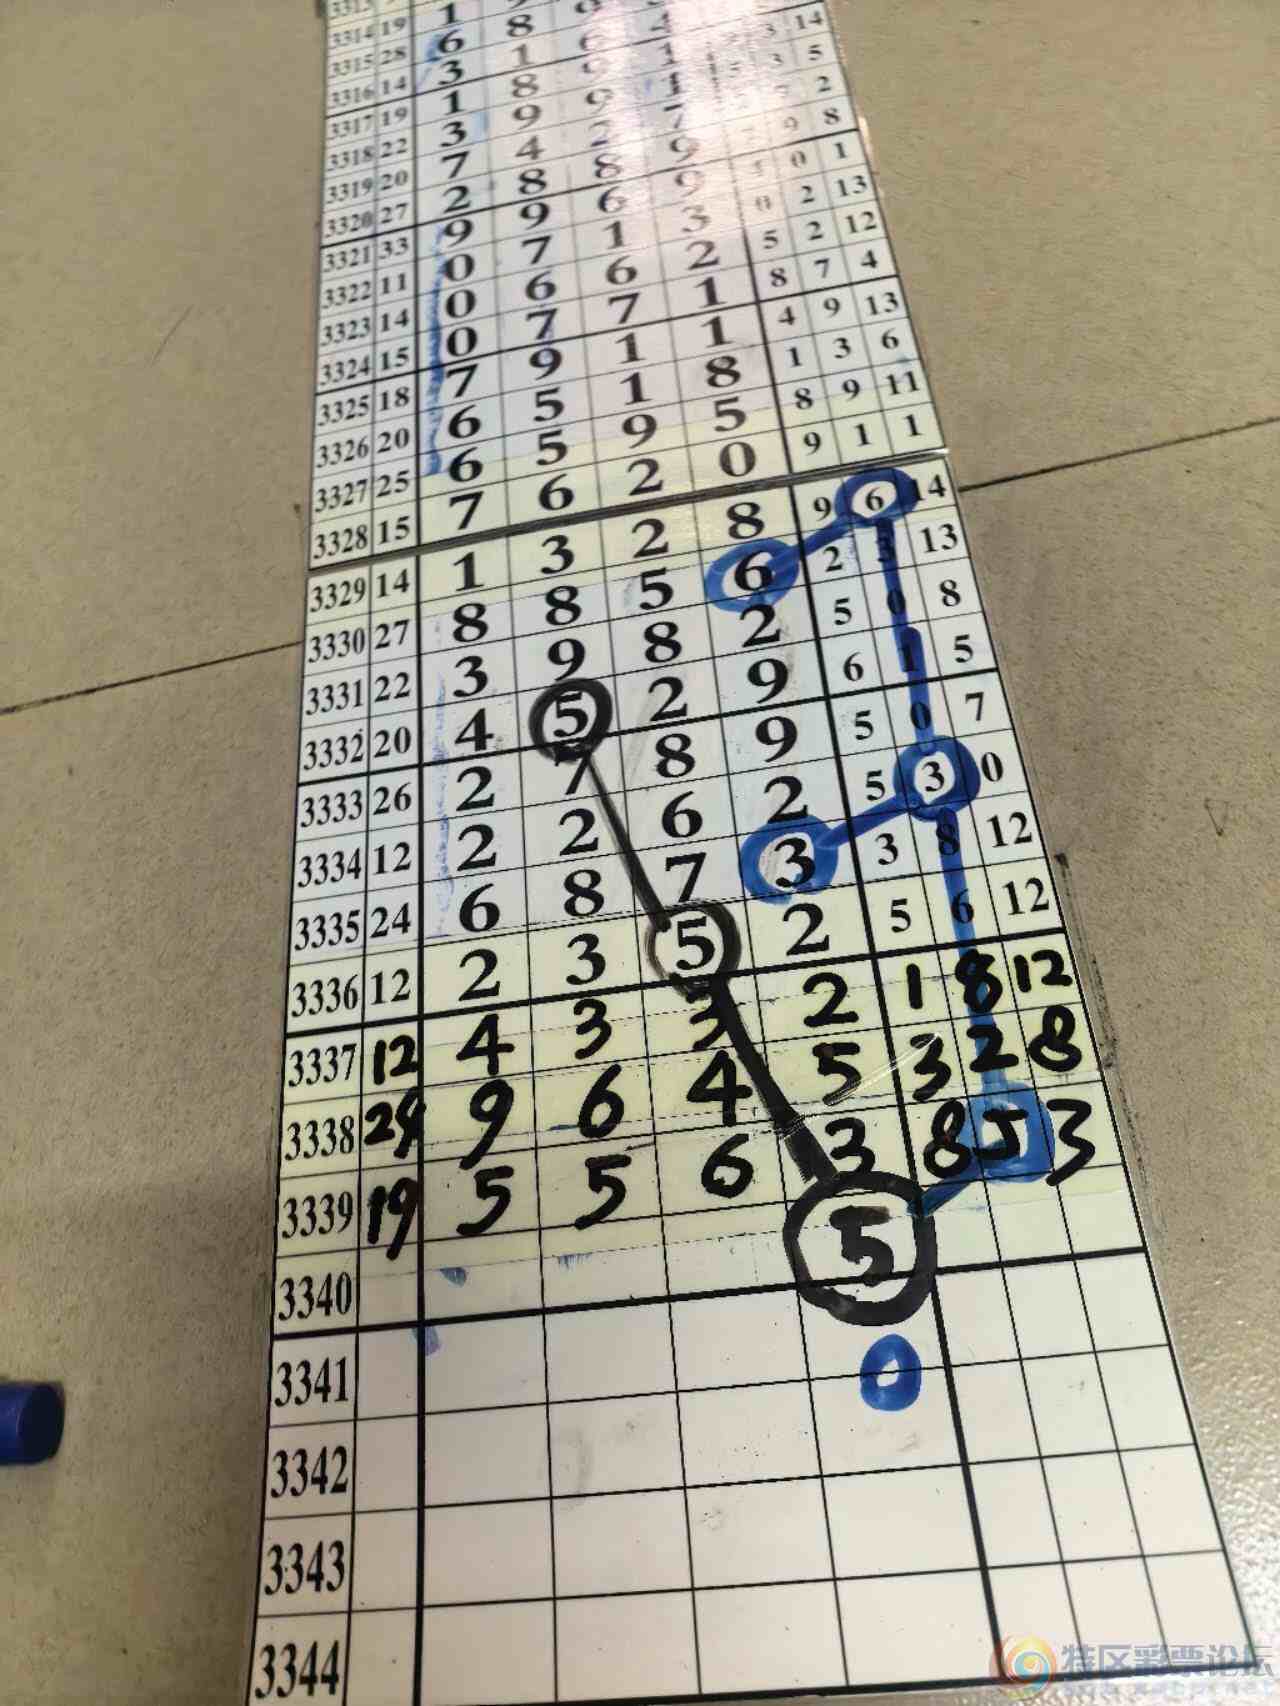 3314 19 1
3315 28 6 8
3316 14 3 1 6 4
3317 19 1 8 9 1 3 14
3318 22 3 9 9 1 5 3 5
3319 20 7 4 2 7 7 2
3320 27 2 8 8 9 7 9 8
3321 33 9 9 6 9 5 0 1
3322 11 0 7 1 3 0 2 13
3323 14 0 6 6 2 5 2 12
3324 15 0 7 7 1 8 7 4
3325 18 7 9 1 1 4 9 13
3326 20 6 5 1 8 1 3 6
3327 25 6 5 9 5 8 9 11
3328 15 7 6 2 0 9 1 1
3329 14 1 3 2 8 9 6 14
3330 27 8 8 5 6 2 3 13
3331 22 3 9 8 2 5 0 8
3332 20 4 5 2 9 6 1 5
3333 26 2 7 8 9 5 0 7
3334 12 2 2 6 2 5 3 0
3335 24 6 8 7 3 3 8 12
3336 12 2 3 5 2 5 6 12
3337 12 4 3 3 2 1 8 12
3338 24 9 6 4 5 3 2 8
3339 19 5 5 6 3 8 5 3
3340 5
3341 0
3342
3343
3344
特区彩票论坛